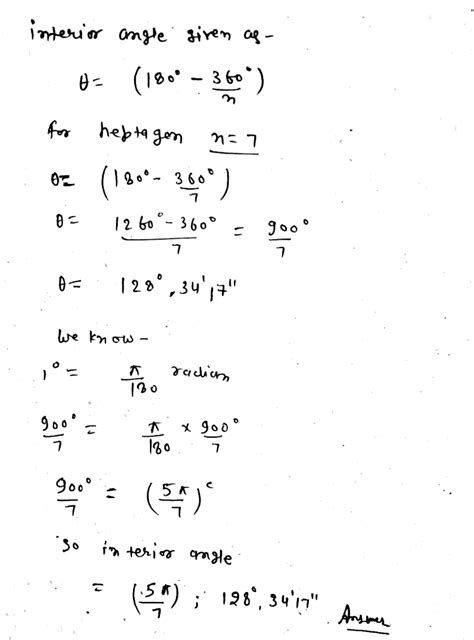 interior angle given as -
θ = (180° - 360°/n)
for heptagon n = 7
θ = (180° - 360°/7)
θ = 1260° - 360°/7 = 900°/7
θ = 128°, 34', 17"
We know -
1° = π/180 radian
900°/7 = π/180 × 900°/7
900°/7 = (5π/7)ᶜ
So interior angle
= (5π/7) ; 128°, 34' 17" Answer